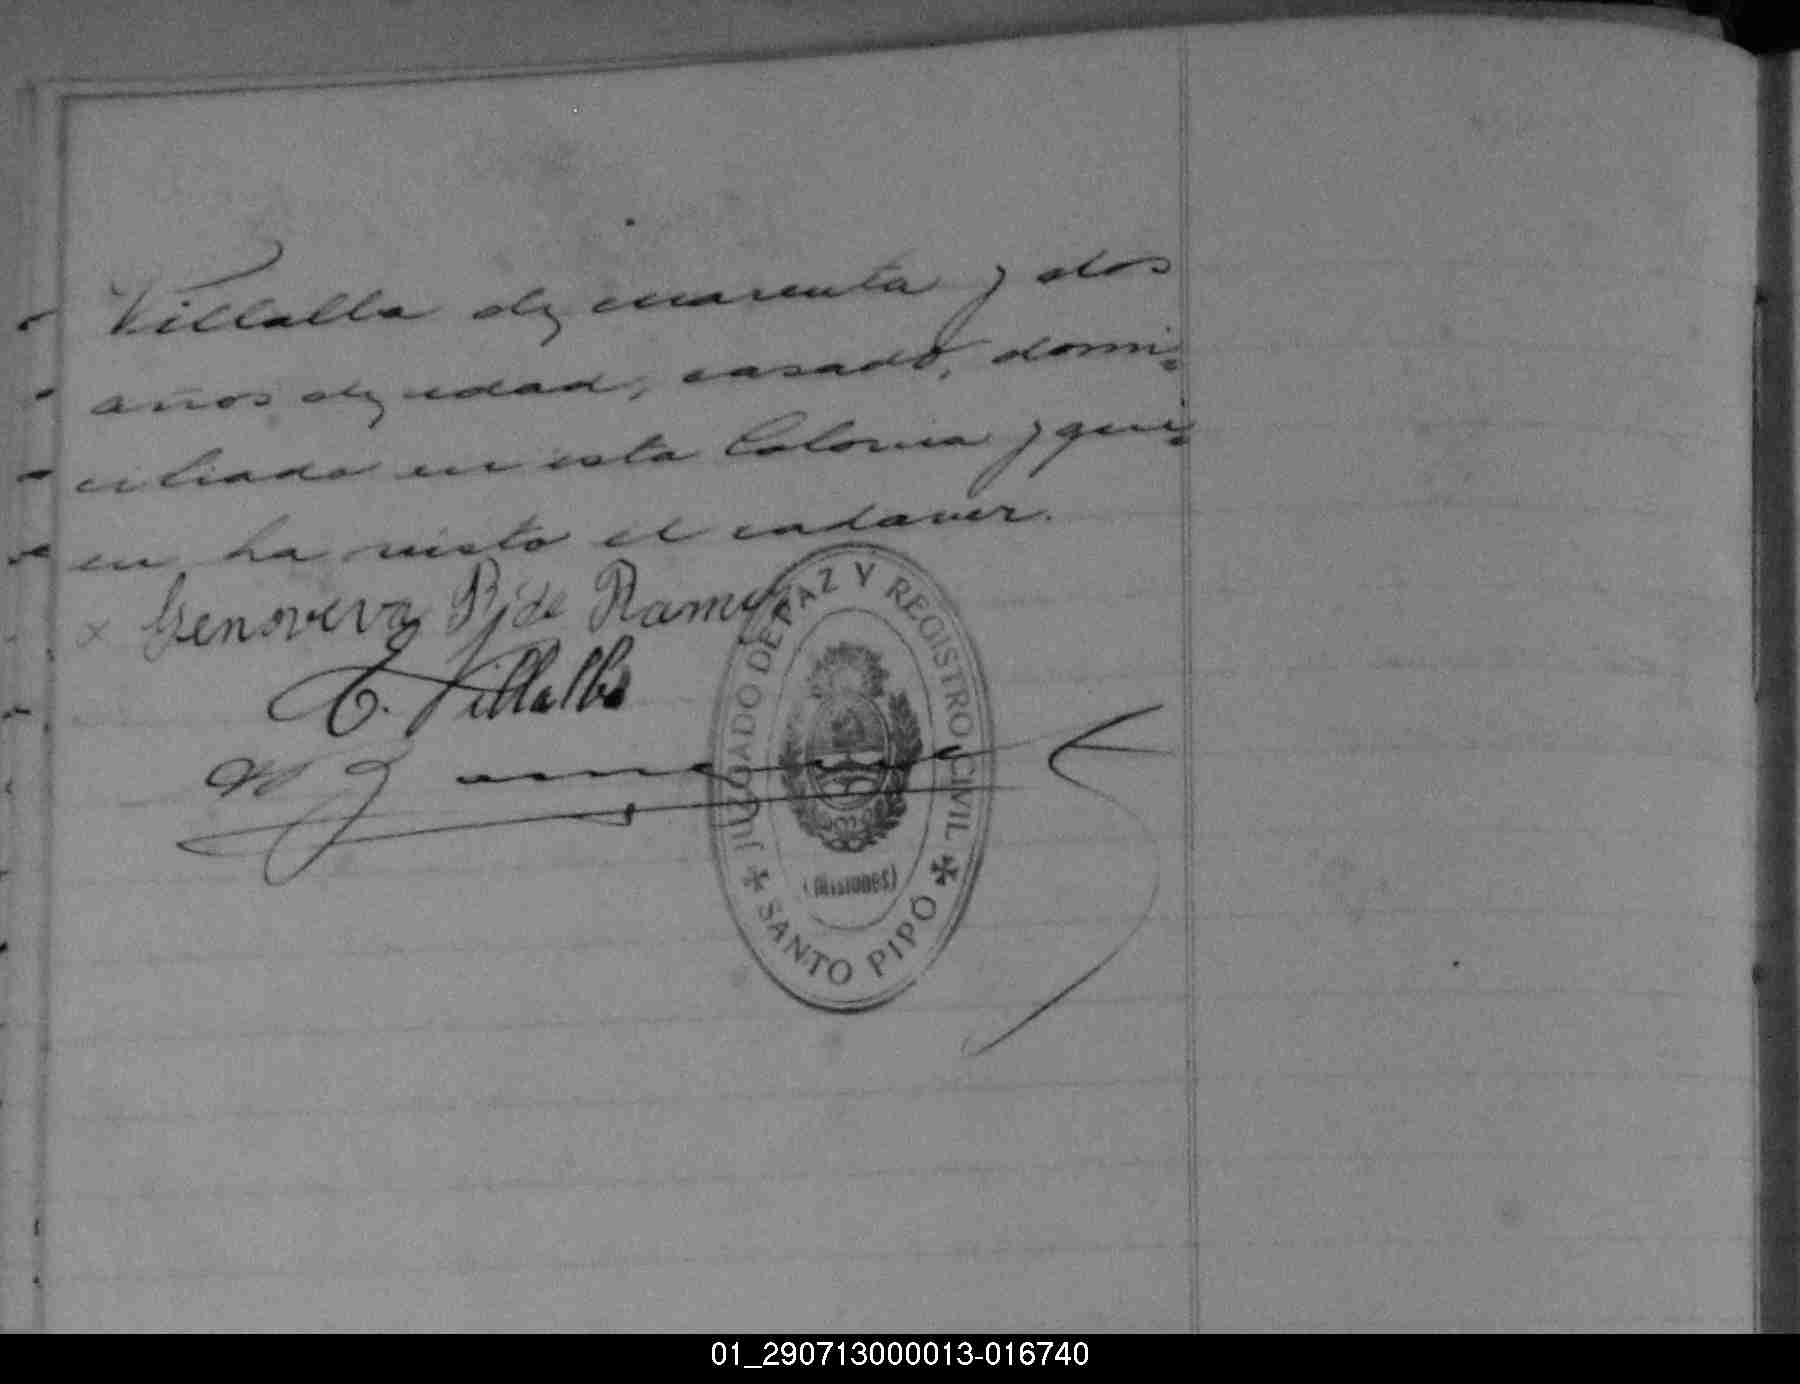 Villalba de cuarenta y dos
años de edad, casado, domi-
ciliado en esta Colonia y qui-
en ha visto el cadaver.
x Genoveva R. de Ramirez
T. Villalba
JUZGADO DE PAZ Y REGISTRO CIVIL
(Misiones)
SANTO PIPÓ
01_290713000013-016740